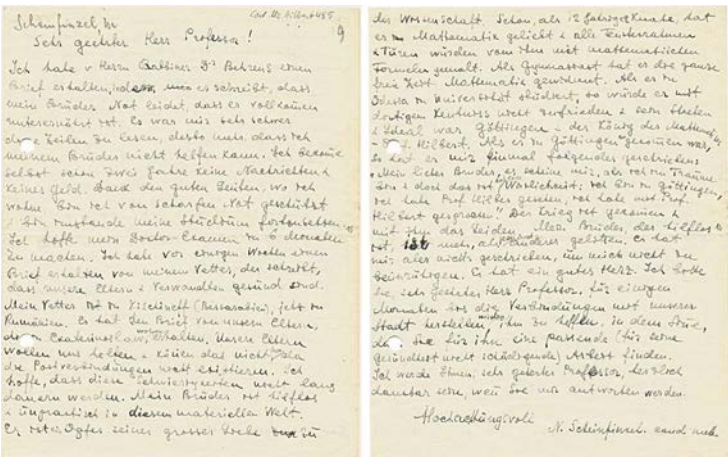 Cod. Ms. Hilbert 455
9
Scheinfinzel,
Sehr geehrter Herr Professor!
Ich habe v Herrn Rabbiner Dr Behrens einen
Brief erhalten, in dem er schreibt, dass
mein Bruder Not leidet, dass er vollkommen
unterernährt ist. Es war mir sehr schwer
diese Zeilen zu lesen, desto mehr, dass ich
meinem Bruder nicht helfen kann. Ich bekomme
selbst schon zwei Jahre keine Nachrichten &
keines Geld. Dank den guten Leuten, wo ich
wohne bin ich von scharfen Not geschützt
& bin imstande meine Studium fortzusetzen.
Ich hoffe mein Doctor-Examen in 6 Monaten
zu machen. Ich habe vor einigen Wochen einen
Brief erhalten von meinem Vetter, der schreibt,
dass unsere Eltern & Verwandten gesund sind.
Mein Vetter ist in Kischineff (Bessarabien), jetzt in
Rumänien. Er hat den Brief von unsern Eltern,
die in Ekaterinoslaw erhalten. Unsere Eltern
wollen uns helfen & können das nicht, da
die Postverbindungen nicht existieren. Ich
hoffe, dass diese Schwierigkeiten nicht lang
dauern werden. Mein Bruder ist hilflos
& unpractisch in diesen materiellen Welt.
Er ist ein Opfer seines grosser Liebe zu
der Wissenschaft. Schon, als 12 Jahriger Knabe, hat
er die Mathematik geliebt & alle Fensterrahmen
& Türen wurden von ihm mit mathematischen
Formeln gemalt. Als Gymnasiast hat er die ganze
freie Zeit Mathematik gewidmet. Als er in
Odessa in Universität studiert, so wurde er mit
dortigen Kentniss nicht zufrieden & sein Streben
& Ideal war Göttingen - der König der Mathematik
- Prof. Hilbert. Als er in Göttingen gekommen war,
so hat er mir einmal folgendes geschrieben
"Mein lieber Bruder, es scheine mir, als ich im Traume
bin & doch das ist Wirklichkeit: ich bin in Göttingen,
ich habe Prof Hilbert gesehen, ich habe mit Prof.
Hilbert gesprochen!" Der Krieg ist gekommen &
mit ihm das Leiden. Mein Bruder, der hilflos
ist, mehr, als anderes gelitten. Er hat
mir aber nichts geschrieben, um mich nicht zu
beunruhigen. Er hat ein gutes Herz. Ich bitte
Sie, sehr geehrter Herr Professor, für einigen
Monaten bis die Verbindungen mit unserer
Stadt herstellen, ihm zu helfen, in dem Sinne,
dass Sie für ihn eine passende (für seine
gesundheit nicht schädigende) Arbeit finden.
Ich werde Ihnen, sehr geehrter Professor, herzlich
dankbar sein, wenn Sie mir antworten werden.
Hochachtungsvoll
N. Scheinfinkel. cand. med.